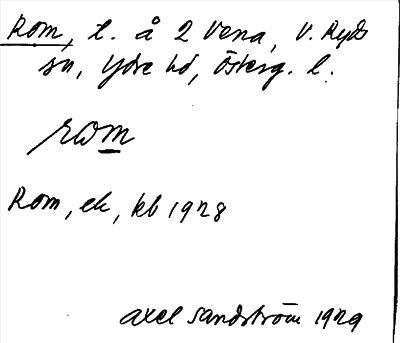 Rom, t. å 2 Vena, V. Ryds
sn, Ydre hd, Österg. l.
rom
Rom, ek, kb 1928
Axel Sandström 1929